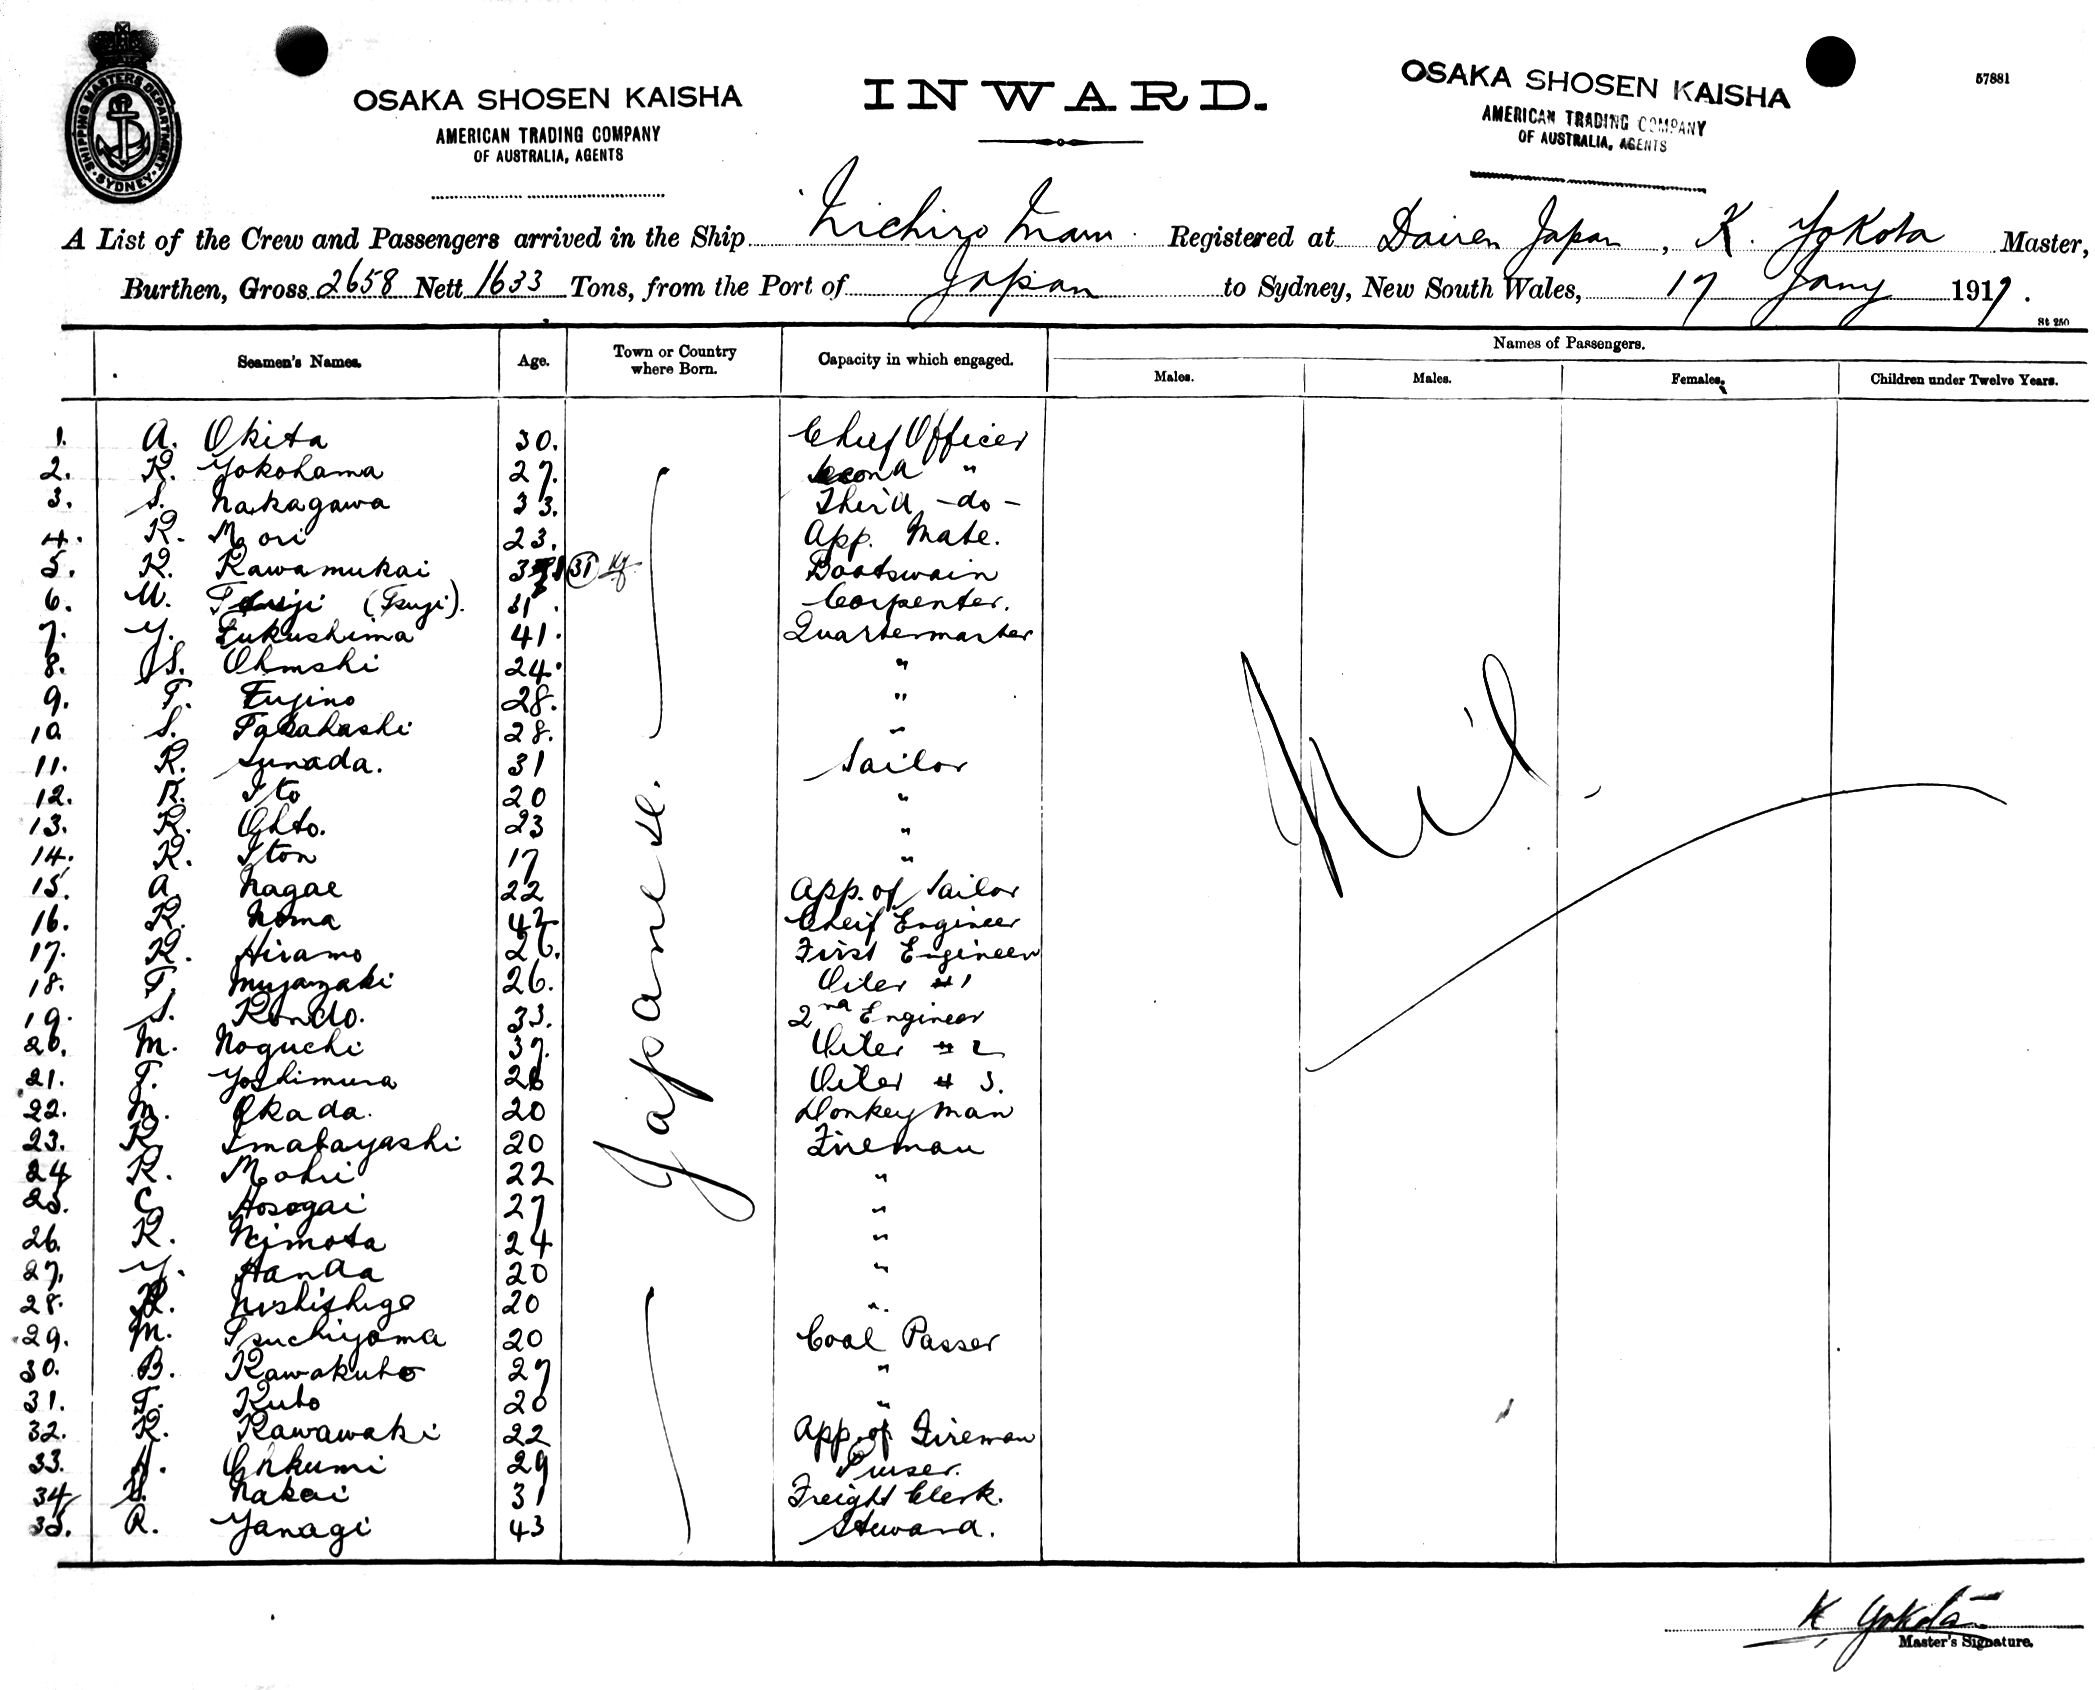 SHIPPING MASTERS DEPARTMENT SYDNEY
OSAKA SHOSEN KAISHA
AMERICAN TRADING COMPANY
OF AUSTRALIA, AGENTS
INWARD.
OSAKA SHOSEN KAISHA
AMERICAN TRADING COMPANY
OF AUSTRALIA, AGENTS
57881
A List of the Crew and Passengers arrived in the Ship Nichiro Maru. Registered at Dairen Japan, K. Yokota Master,
Burthen, Gross 2658 Nett 1633 Tons, from the Port of Japan to Sydney, New South Wales, 17 Jany 1917.
St 250
Seamen's Names. Age. Town or Country where Born. Capacity in which engaged. Names of Passengers.
Males. Males. Females. Children under Twelve Years.
1. A. Okita 30. Chief Officer
2. K. Yokohama 27. Second "
3. S. Nakagawa 33. Third -do-
4. K. Mori 23. App. Mate.
5. K. Kawamukai 31 Boatswain
6. U. (Tsuji). 31. Carpenter.
7. Y. Fukushima 41. Quartermaster
8. S. Ohmshi 24. "
9. T. Fujino 28. "
10 S. Takahashi 28. "
11. K. Sunada. 31 Sailor
12. K. Ito 20 "
13. K. Ohto. 23 "
14. K. Iton 17 "
15. A. Nagae 22 App. of Sailor
16. K. Noma 42 Cheif Engineer
17. K. Hirano 26. First Engineer
18. T. Miyazaki 26. Oiler #1
19. S. Kondo. 33. 2nd Engineer
20. M. Noguchi 37. Oiler #2
21. T. Yoshimura 26 Oiler #3.
22. M. Okada. 20 Donkeyman
23. K. Imabayashi 20 Fireman
24 K. Mohri 22 "
25. C. Hosogai 27 "
26. K. Nimota 24 "
27. Y. Handa 20 "
28. K. Nishishige 20 "
29. M. Tsuchiyama 20 Coal Passer
30. B. Kawakubo 27 "
31. T. Kubo 20 "
32. K. Kawawaki 22 App. of Fireman
33. H. Ohkumi 29 Purser.
34 S. Nakai 31 Freight Clerk.
35. R. Yanagi 43 Steward.
Japanese.
Nil.
K Yokota
Master's Signature.